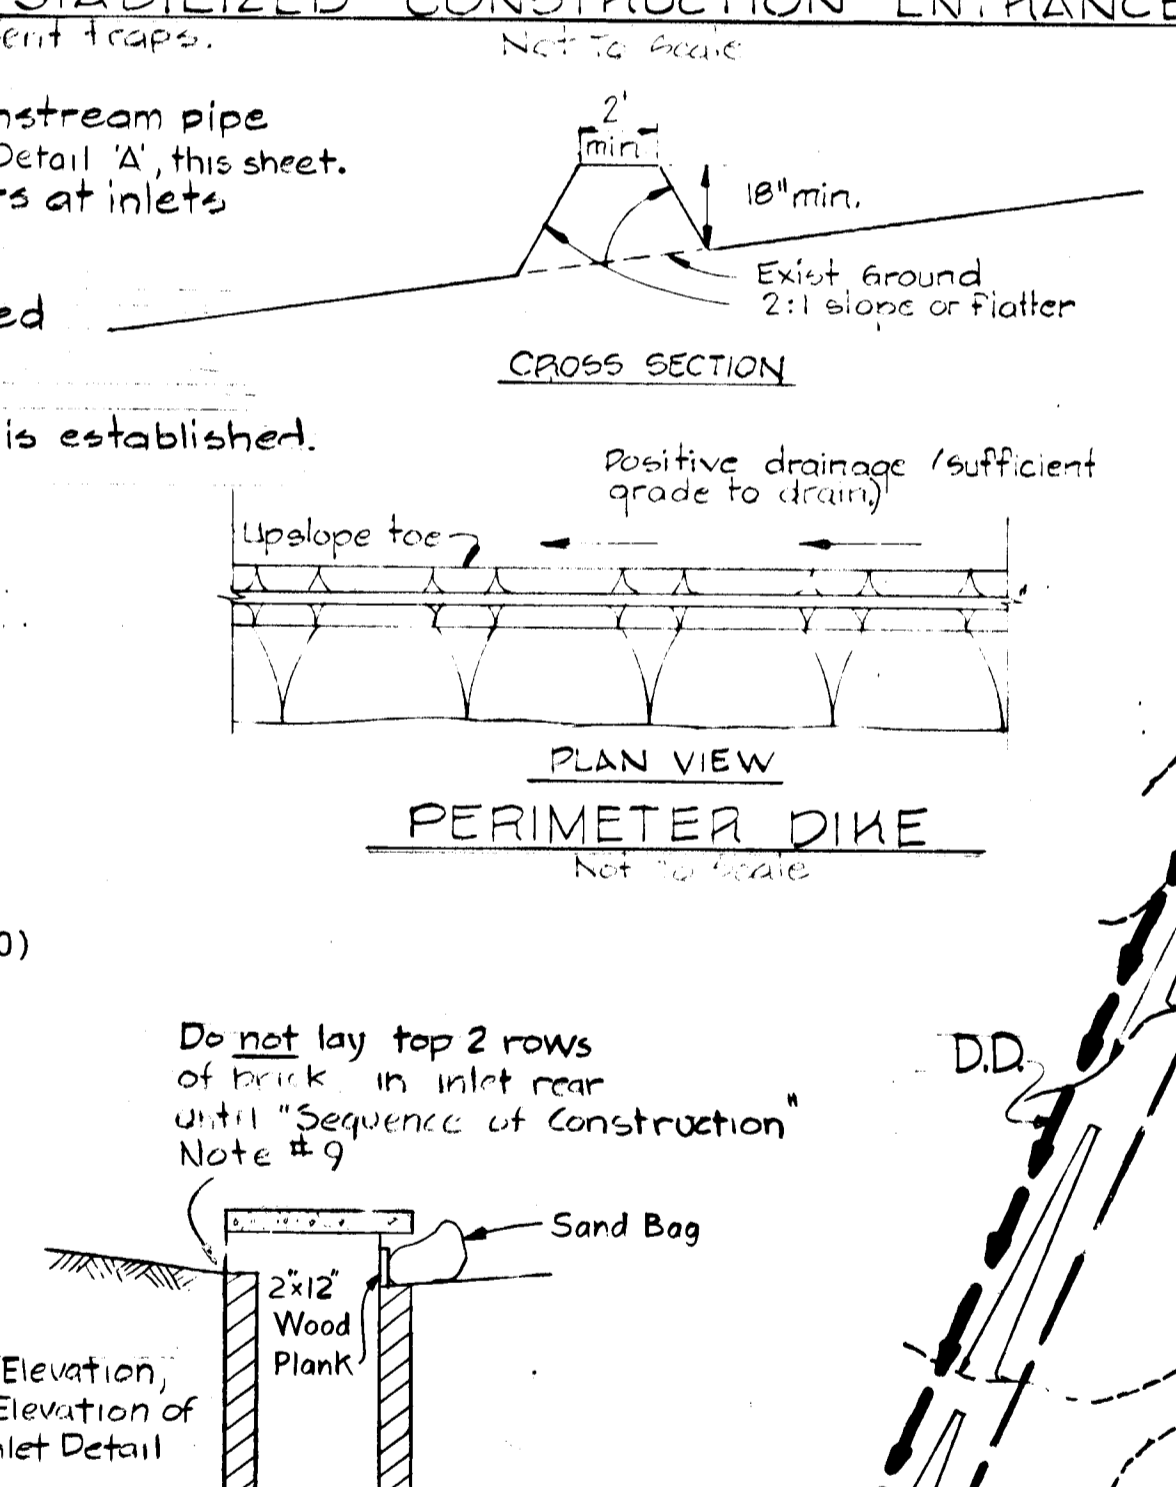 STABILIZED CONSTRUCTION ENTRANCE
Not To Scale
ent traps.
nstream pipe
Detail 'A', this sheet.
rs at inlets
ed
is established.
2'
min
18" min.
Exist Ground
2:1 slope or flatter
CROSS SECTION
Positive drainage (sufficient
grade to drain)
Upslope toe
PLAN VIEW
PERIMETER DIKE
Not To Scale
0)
Do not lay top 2 rows
of brick in inlet rear
until "Sequence of Construction"
Note #9
D.D.
Sand Bag
2"x12"
Wood
Plank
Elevation,
Elevation of
nlet Detail